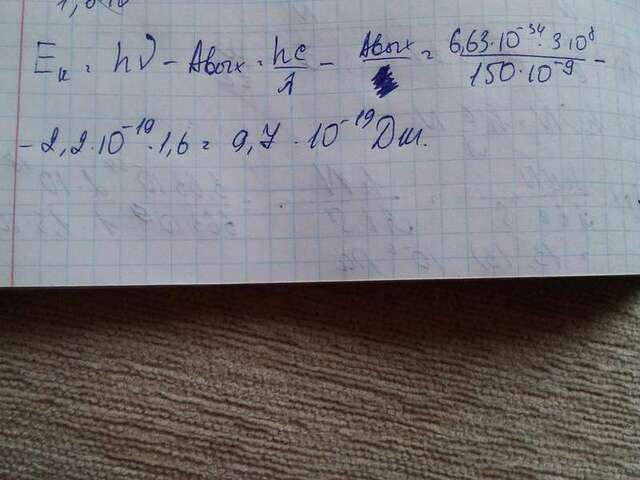 Eк = hν - Aвых = hc/λ - Aвых = 6,63·10⁻³⁴·3·10⁸/150·10⁻⁹ -
- 2,2·10⁻¹⁹·1,6 = 9,7·10⁻¹⁹ Дж.